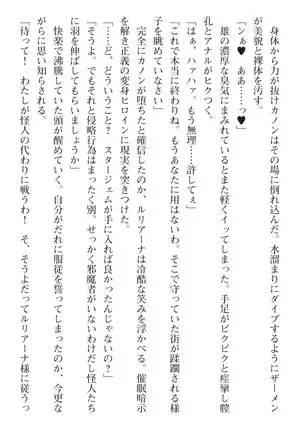 身体から力が抜けカノンはその場に倒れ込んだ。水溜まりにダイブするようにザーメン
が美貌と裸体を汚す。
「ンぅ♥ ああ……っ♥」
雄の濃厚な臭気にまみれているとまた軽くイッてしまった。手足がピクピクと痙攣し膣
孔とアナルがヒクつく。
「はぁ、ハァハァ。もう無理……許してぇ」
「これで本当に終わりね。もうあなたに用はないわ。そこで守っていた街が蹂躙される様
子を眺めていなさい」
完全にカノンが堕ちたと確信したのか、ルリアーナは冷酷な笑みを浮かべる。催眠暗示
を解き正義の変身ヒロインに現実を突きつけた。
「……ど、どういうこと？ スタージェムが手に入れば良かったんじゃないの？」
「そうよ。でもそれと侵略行為はまったく別。せっかく邪魔者がいないわけだし怪人たち
に羽を伸ばしてもらいましょうか」
快楽で沸騰していた頭が醒めていく。自分がだれに服従を誓ってしまったのか、今更な
がらに思い知らされる。
「待って！ わたしが怪人の代わりに戦うわ！ そ、そうよだってルリアーナ様に従うっ